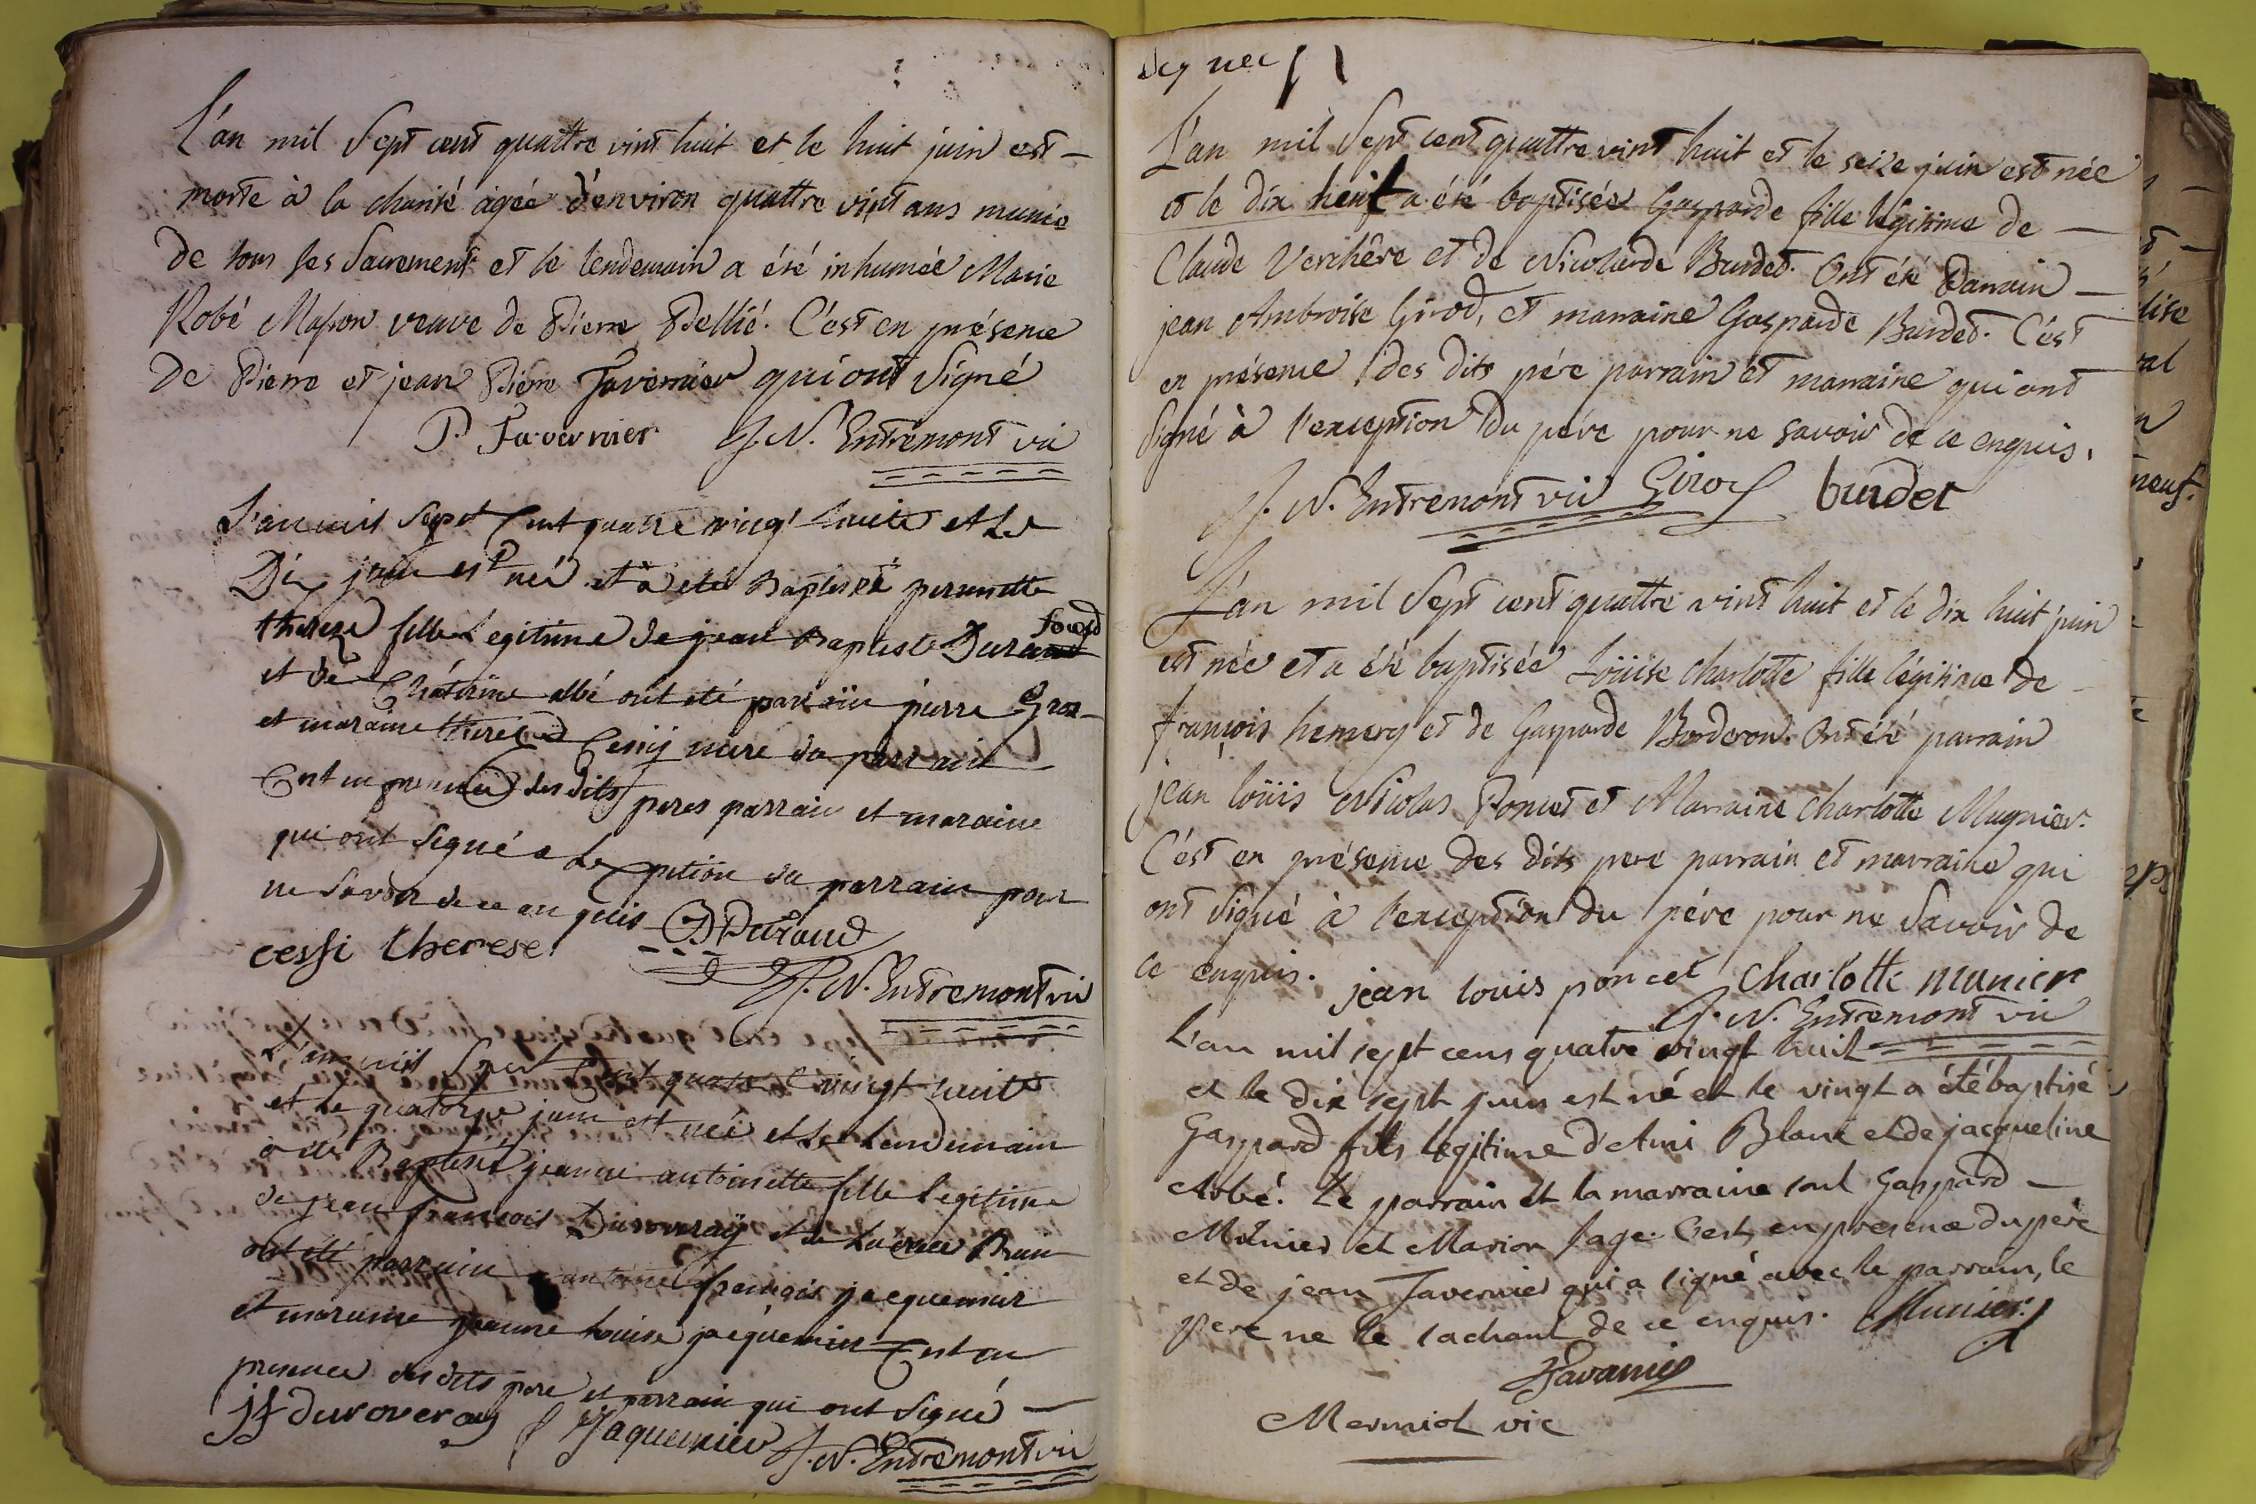 L'an mil Sept cent quattre vint huit et le huit juin est
morte à la charité agée d'environ quattre vint ans munie
de tous ses Sacremens et le lendemain a été inhumée Marie
Robé Masson veuve de Pierre Pellié. C'est en présence
de Pierre et jean Pierre Tavernier qui ont Signé
P. Tavernier J. N. Entremont vic
L'an mil Sept Cent quatre vingt huite et Le
Dix juin est née et a eté Baptisée pernette
thereze fille Légitime de jean Baptiste Durand
et de Chaterine albé ont été parrain pierre Gros
et maraine thereze Cessy mere du parrain
C'est en presence des dits peres parrain et maraine
qui ont Signé a Lexception du parrain pour
ne Savoir de ce enquis Durand
cessi therese
J. N. Entremont vic
L'an mil Sept Cent quatre vingt huite
et Le quatorze juin est née et Le Lendemain
a été Baptisée jeanne antoinette fille Legitime
de jean francois Duroveray et de
ont été parrain antoine françois jacquemier
et maraine jeanne Louise jaquemier C'est en
presence des dits pere et parrain qui ont Signé
jf duroveray Jaquemier J. N. Entremont vic
L'an mil Sept cent quattre vint huit et le seize juin est née
et le dix huit a été baptisée Gasparde fille légitime de
Claude Verchère et de Nicolarde Burdet. Ont été Parrain
jean Ambroise Girod, et marraine Gasparde Burdet. C'est
en présence des dits pére parrain et marraine qui ont
Signé à l'exception du pére pour ne savoir de ce enquis.
J. N. Entremont vic Girod burdet
L'an mil Sept cent quattre vint huit et le dix huit juin
est née et a été baptisée Loüise charlotte fille légitime de
françois hemery et de Gasparde Borderon. Ont été parrain
jean loüis Nicolas Poncet et Marraine charlotte Mugnier.
C'est en présence des dits pere parrain et marraine qui
ont Signé à l'exception du pére pour ne Savoir de
ce enquis. jean louis poncet charlotte munier
J. N. Entremont vic
L'an mil sept cens quatre vingt huit
et le dix sept juin est né et le vingt a été baptisé
Gaspard fils legitime d'Ami Blanc et de jacqueline
Arbé. Le parrain et la marraine sont Gaspard
Munier et Marion Sage. C'est en presence du père
et de jean Tavernier qui a signé avec le parrain, le
pere ne le sachant de ce enquis. Munier
Tavanier
Mermiol vic